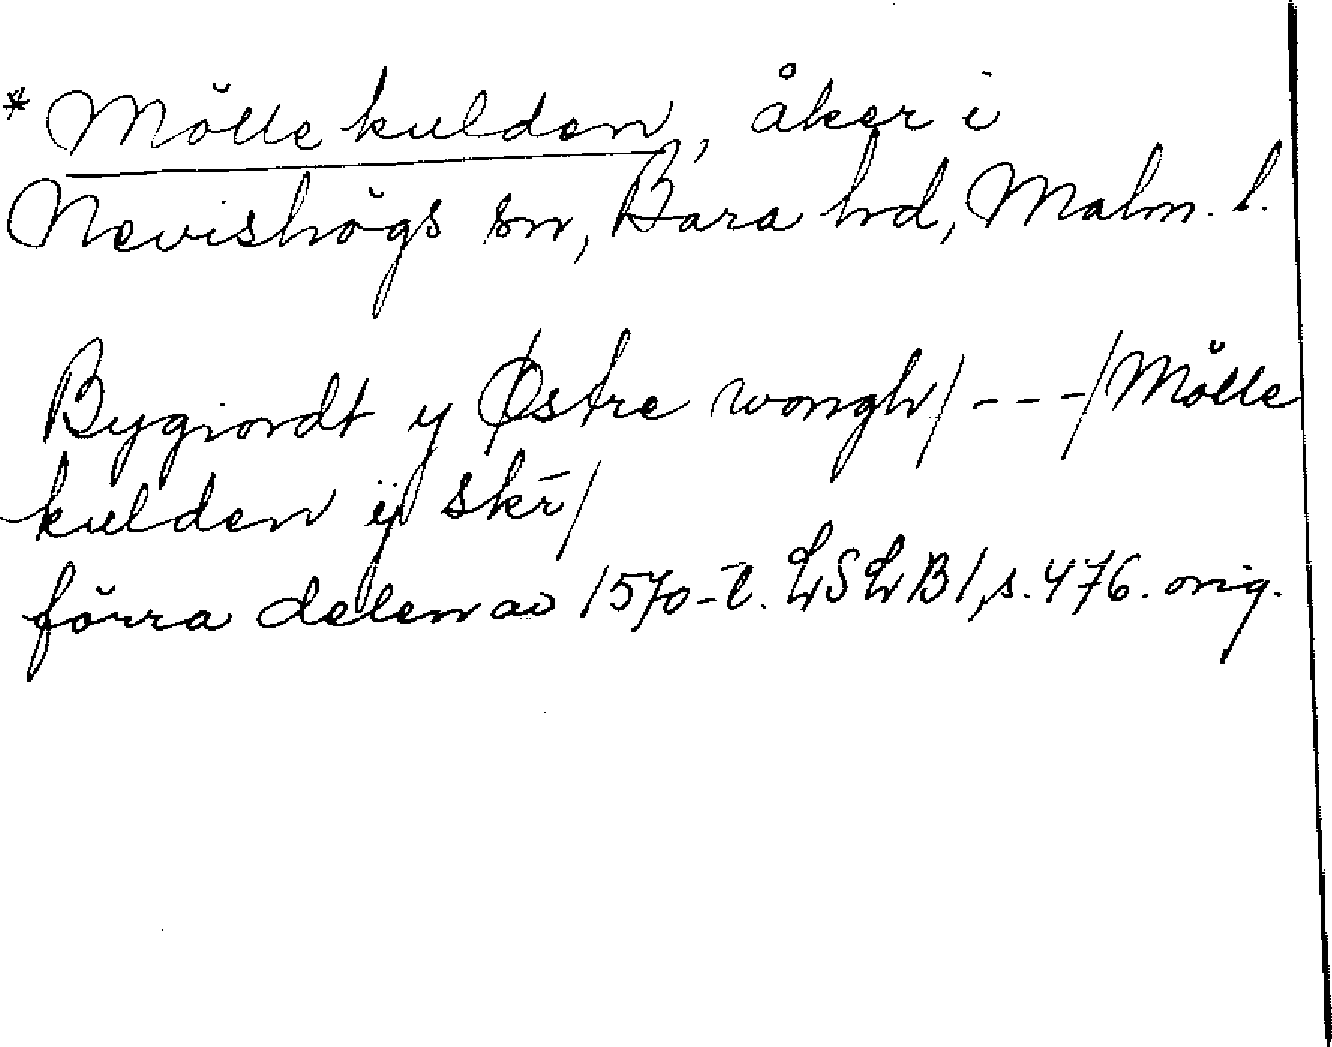 * Mölle kulden, åker i
Nevishögs sn, Bara hd, Malm. l.
Bygiordt y Østre wongh/ - - -/Mölle
kulden ij skr̄/
förra delen av 1570-t. LSLB1, s. 476. orig.